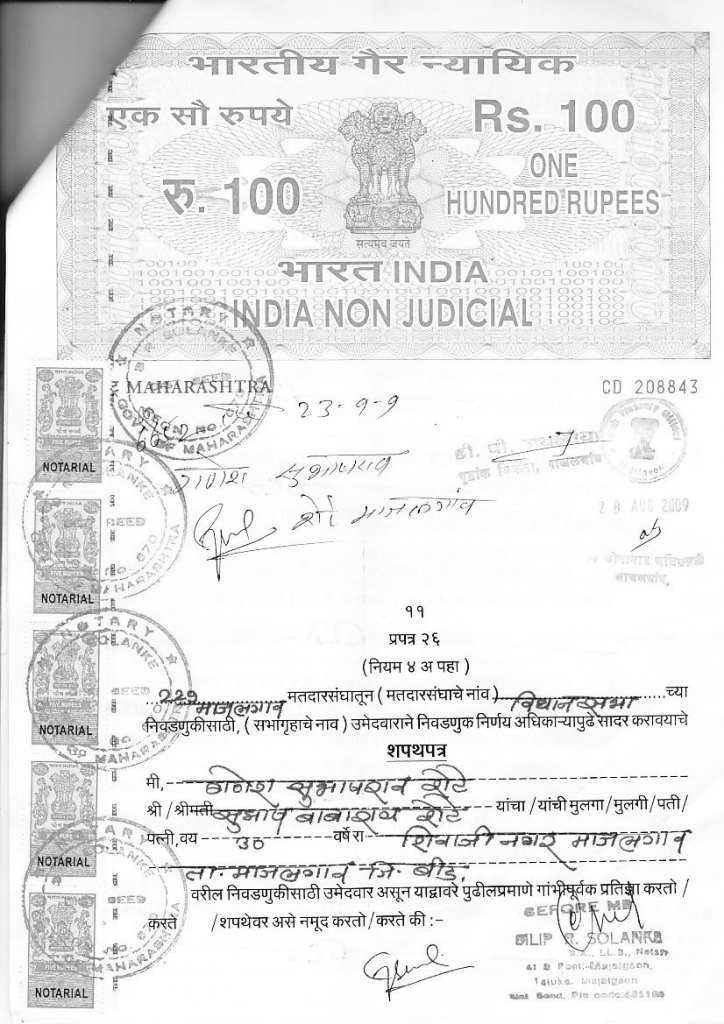 भारतीय गैर न्यायिक
एक सौ रुपये
Rs. 100
रु. 100
ONE
HUNDRED RUPEES
सत्यमेव जयते
भारत INDIA
INDIA NON JUDICIAL
MAHARASHTRA
CD 208843
23-9-9
गणेश सुभाषराव
शेटे माजलगांव
28 AUG 2009
NOTARIAL
NOTARIAL
NOTARIAL
NOTARIAL
NOTARIAL
NOTARY
SOLANKE
BEED
GOVT OF MAHARASHTRA
११
प्रपत्र २६
(नियम ४ अ पहा)
229 माजलगाव मतदारसंघातून (मतदारसंघाचे नांव) विधानसभा च्या
निवडणुकीसाठी, (सभागृहाचे नाव) उमेदवाराने निवडणुक निर्णय अधिकाऱ्यापुढे सादर करावयाचे
शपथपत्र
मी, गणेश सुभाषराव शेटे
श्री / श्रीमती सुभाष बाबाराव शेटे यांचा / यांची मुलगा / मुलगी / पती /
पत्नी, वय 30 वर्षे रा शिवाजी नगर माजलगाव
ता. माजलगाव जि. बीड,
वरील निवडणुकीसाठी उमेदवार असून याद्वावरे पुढीलप्रमाणे गांभीर्पूवक प्रतिज्ञा करतो /
करते / शपथेवर असे नमूद करतो / करते की :-
BEFORE ME
DILIP R. SOLANKE
B.A., LL.B., Notary
At & Post:-Majalgaon,
Taluka. Majalgaon